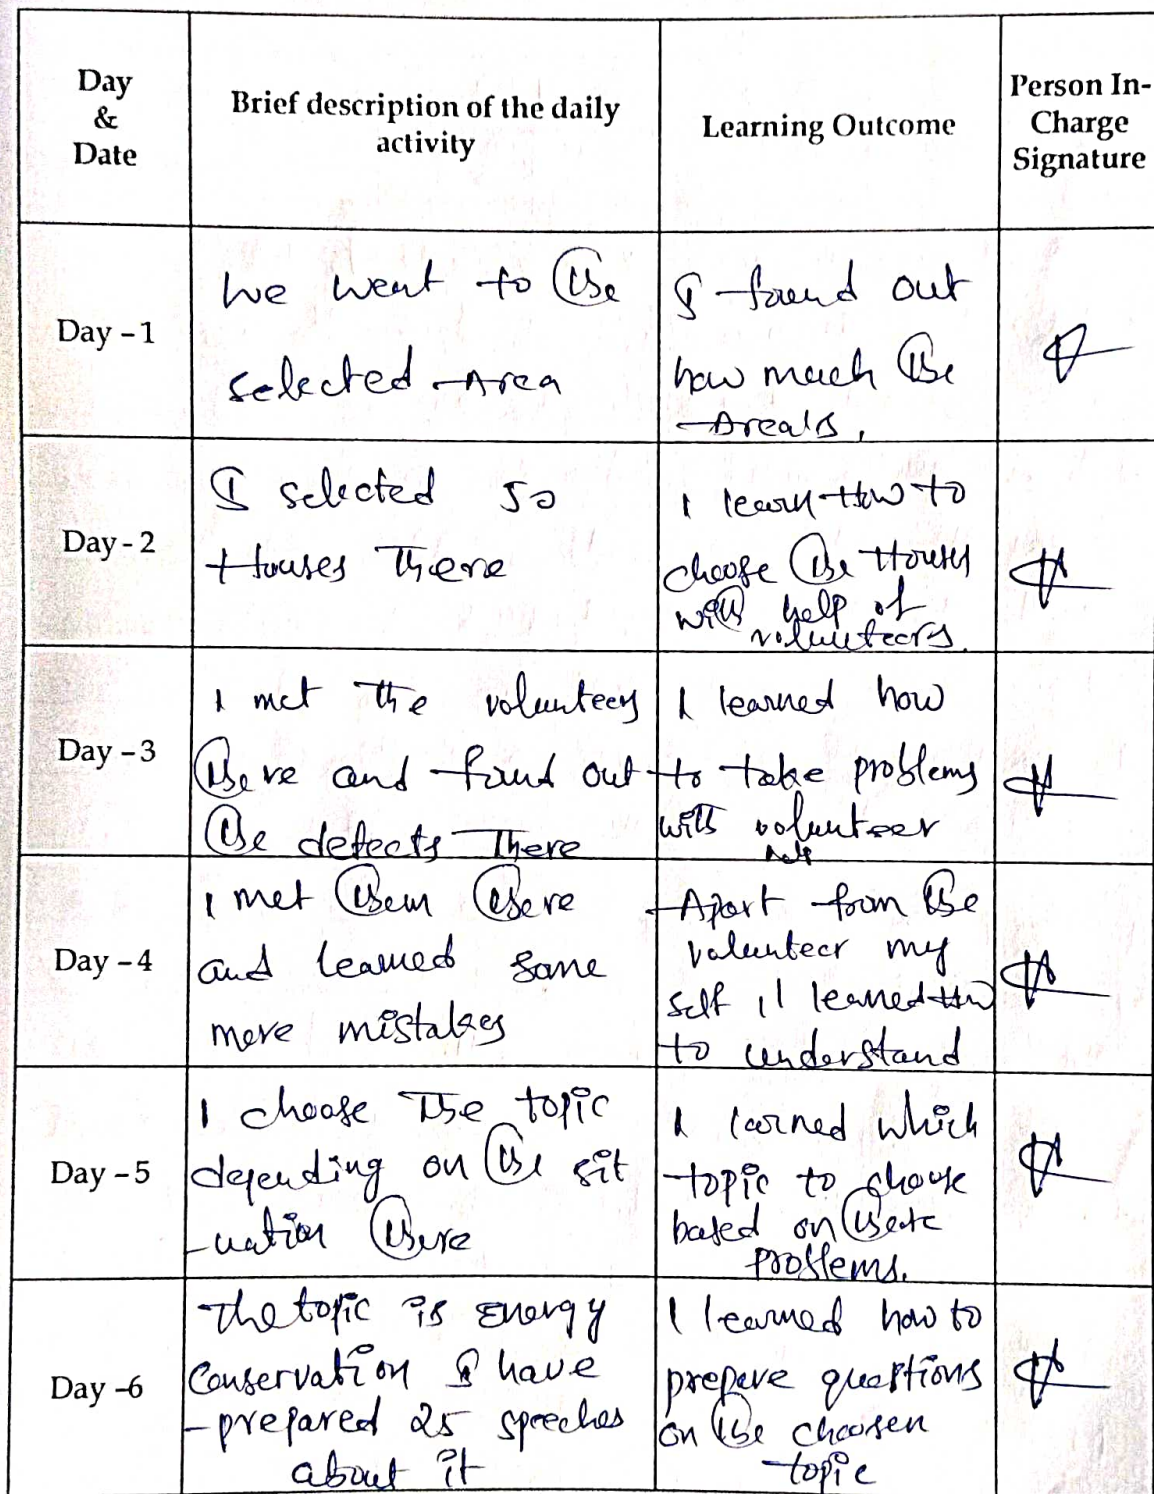 Day
&
Date
Brief description of the daily
activity
Learning Outcome
Person In-
Charge
Signature
Day - 1
we went to the
selected Area
I found out
how much the
Area is.
Day - 2
I selected 50
Houses There
I learn How to
choose the Houses
with help of
volunteers.
Day - 3
I met The volunteers
there and found out
the defects There
I learned how
to take problems
with volunteer
Day - 4
I met them there
and learned some
more mistakes
Apart from the
volunteer my
self I learned How
to understand
Day - 5
I choose The topic
depending on the sit
-uation there
I learned which
topic to choose
based on
problems.
Day - 6
The topic is Energy
Conservation I have
-prepared 25 speeches
about it
I learned how to
prepare questions
on the choosen
topic